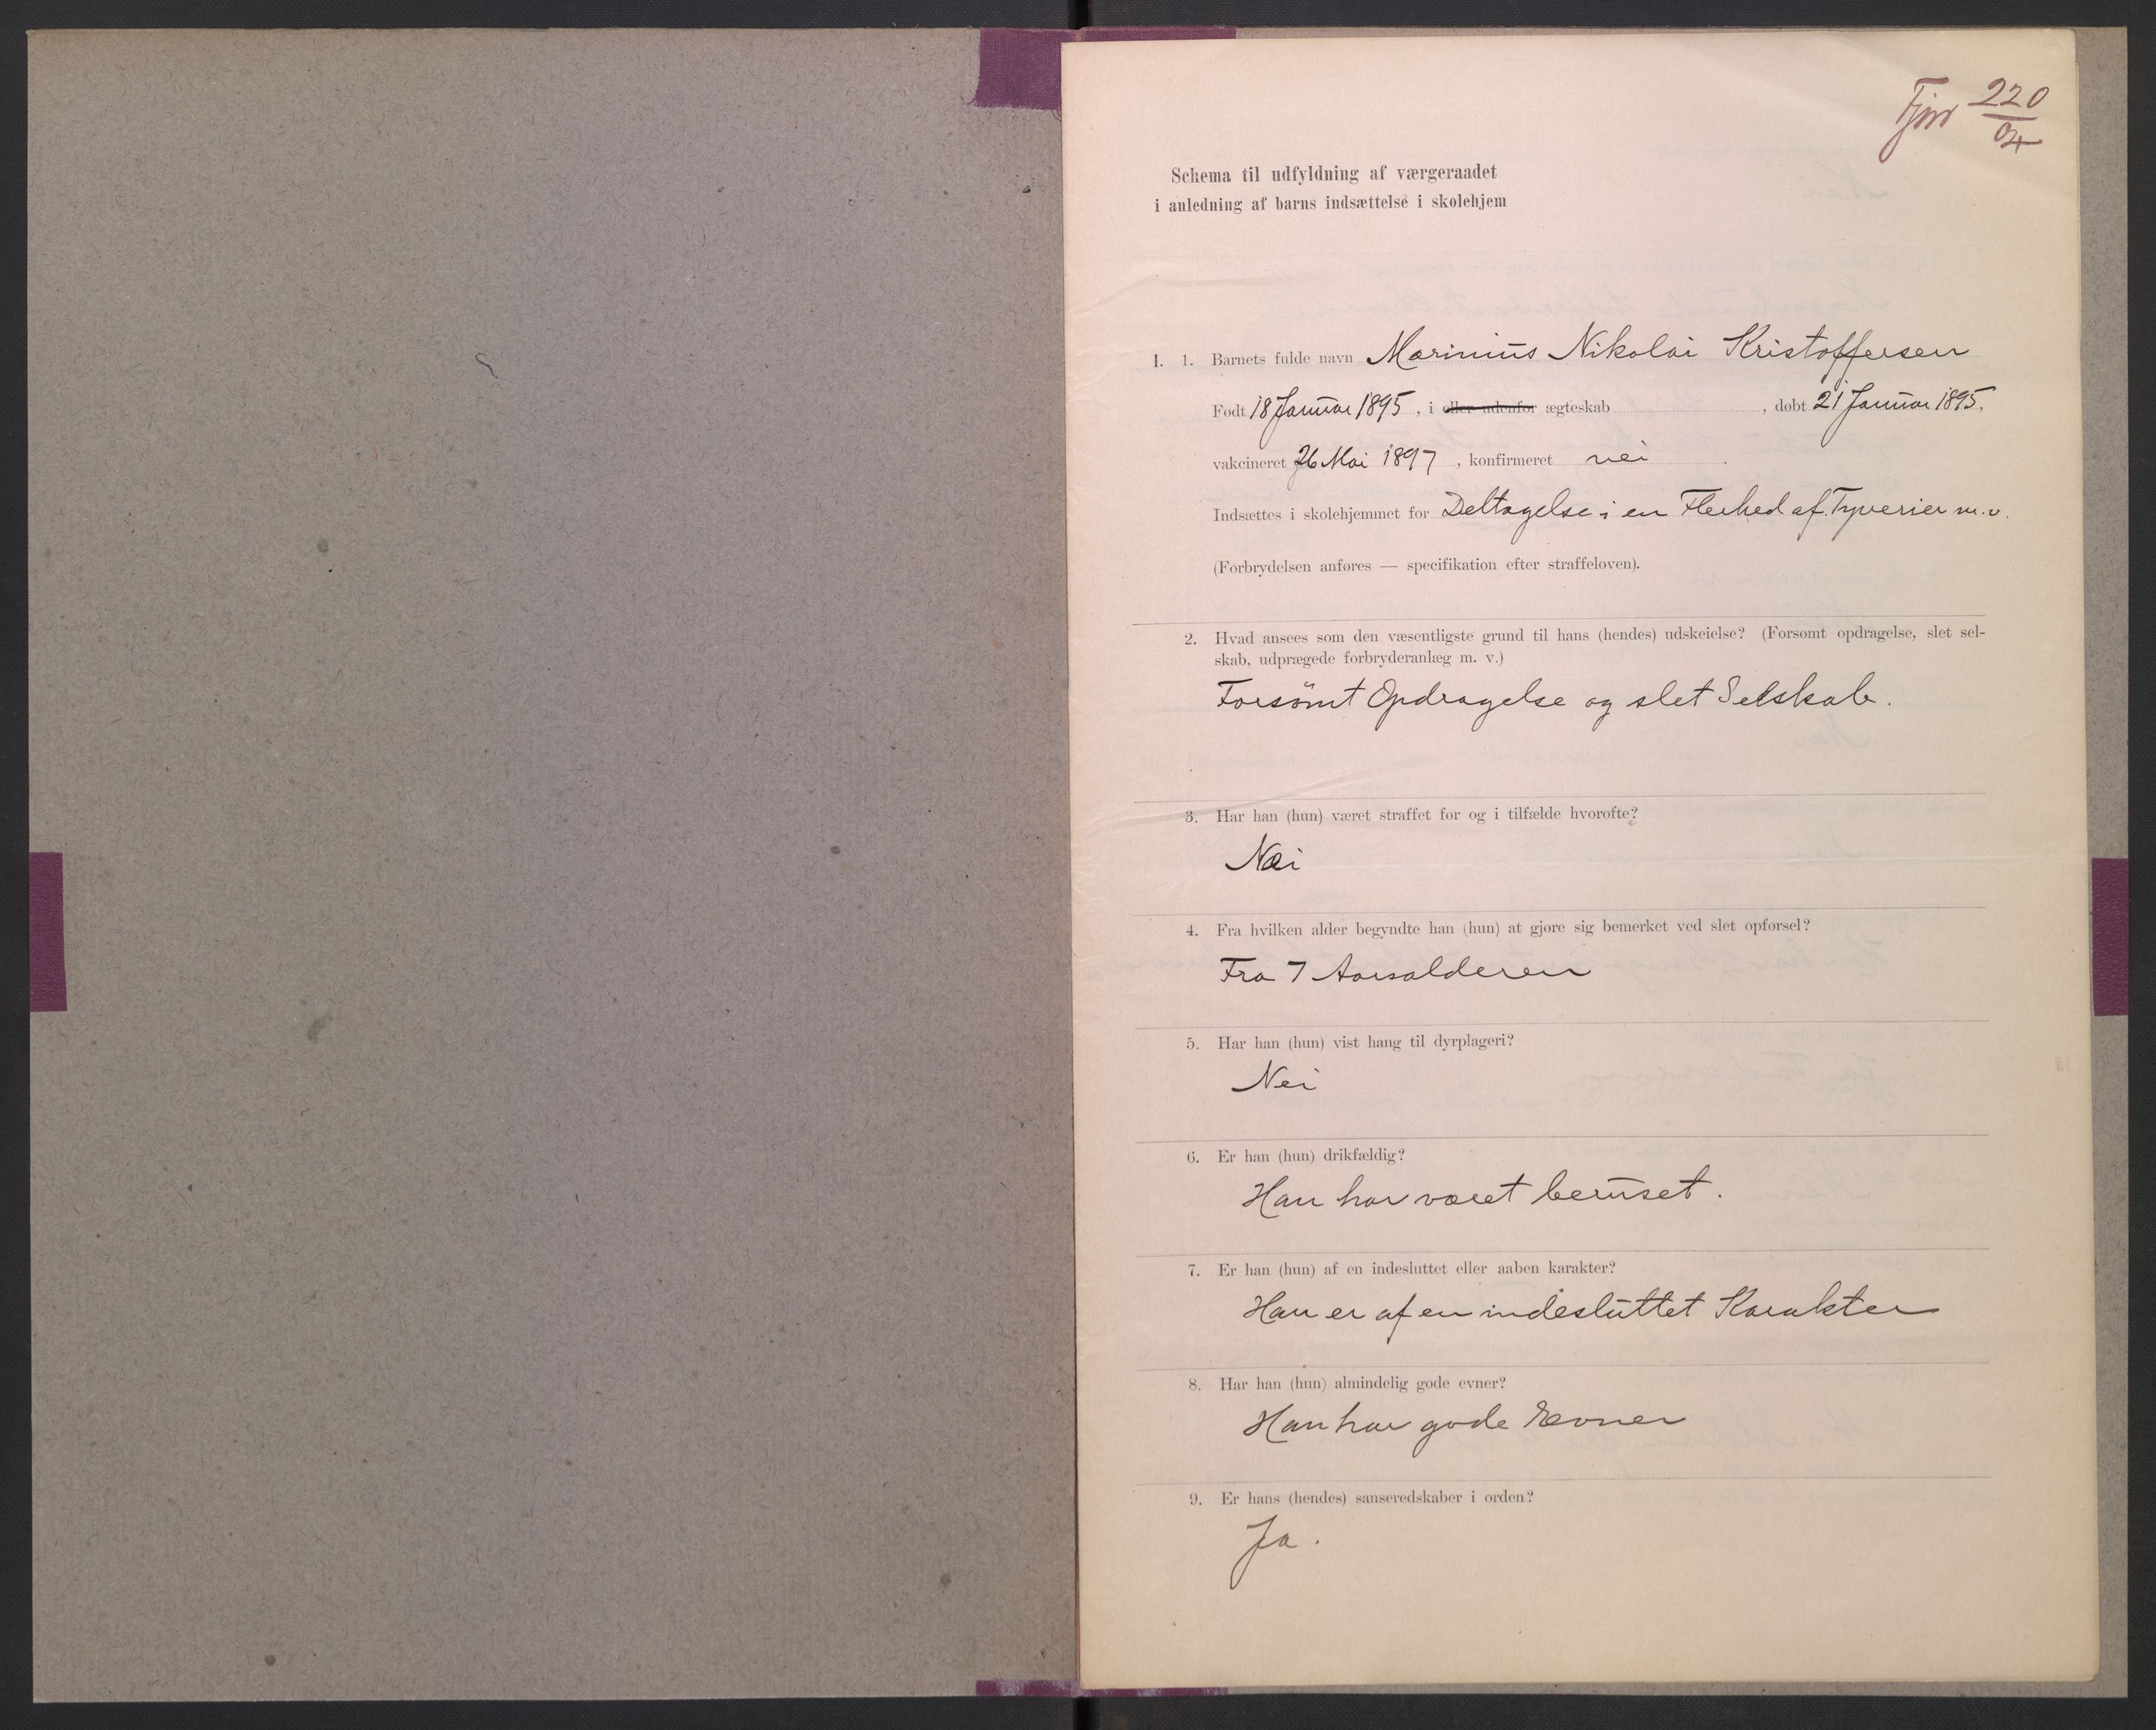 Fjør 220/04
Schema til udfyldning af værgeraadet
i anledning af barns indsættelse i skolehjem
I. 1. Barnets fulde navn Marinius Nikolai Kristoffersen
Født 18 Januar 1895, i eller udenfor ægteskab , døbt 21 Januar 1895.
vakcineret 26 Mai 1897, konfirmeret nei .
Indsættes i skolehjemmet for Deltagelse i en Flerhed af Tyverier m.v.
(Forbrydelsen anføres — specifikation efter straffeloven).
2. Hvad ansees som den væsentligste grund til hans (hendes) udskeielse? (Forsømt opdragelse, slet sel-
skab, udprægede forbryderanlæg m. v.)
Forsömt Opdragelse og slet Selskab.
3. Har han (hun) været straffet før og i tilfælde hvorofte?
Nei
4. Fra hvilken alder begyndte han (hun) at gjøre sig bemerket ved slet opførsel?
Fra 7 Aarsalderen
5. Har han (hun) vist hang til dyrplageri?
Nei
6. Er han (hun) drikfældig?
Han har været beruset.
7. Er han (hun) af en indesluttet eller aaben karakter?
Han er af en indesluttet Karakter
8. Har han (hun) almindelig gode evner?
Han har gode Evner
9. Er hans (hendes) sanseredskaber i orden?
Ja.